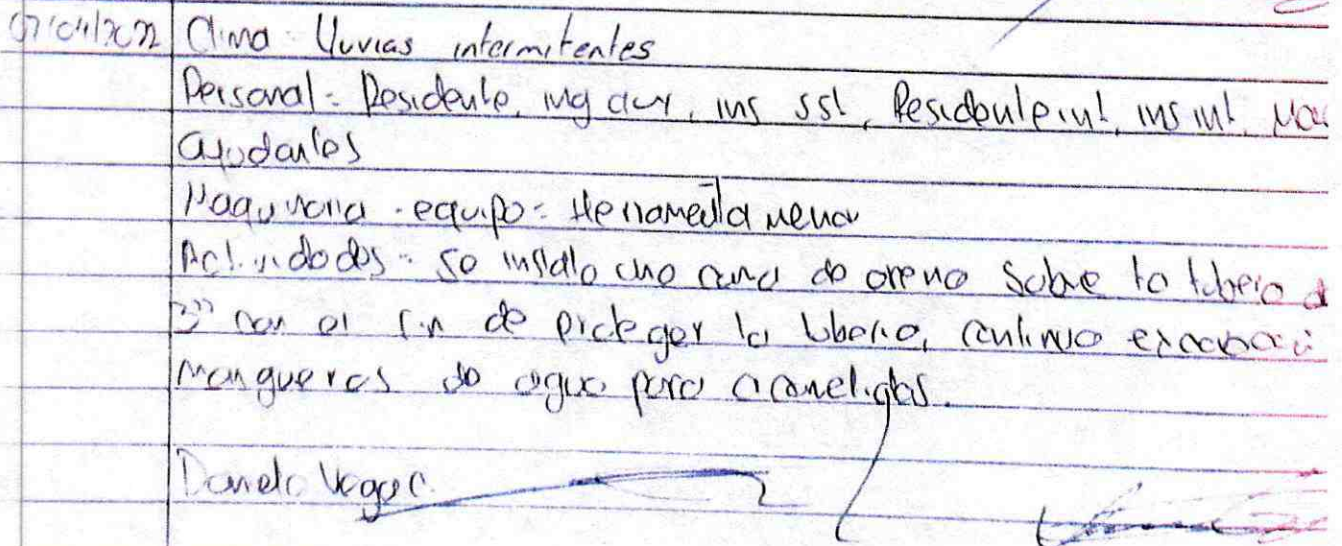 07/04/2022 Clima - lluvias intermitentes
Personal = Residente, ing , ins sst, Residente int, ins int,
ayudantes
Maquinaria - equipo = Herramienta menor
Actividades = se instalo una cama de arena sobre la tuberia d
3" con el fin de proteger la tuberia, continuo excavaci
mangueras de agua para acometidas.
Vega C.